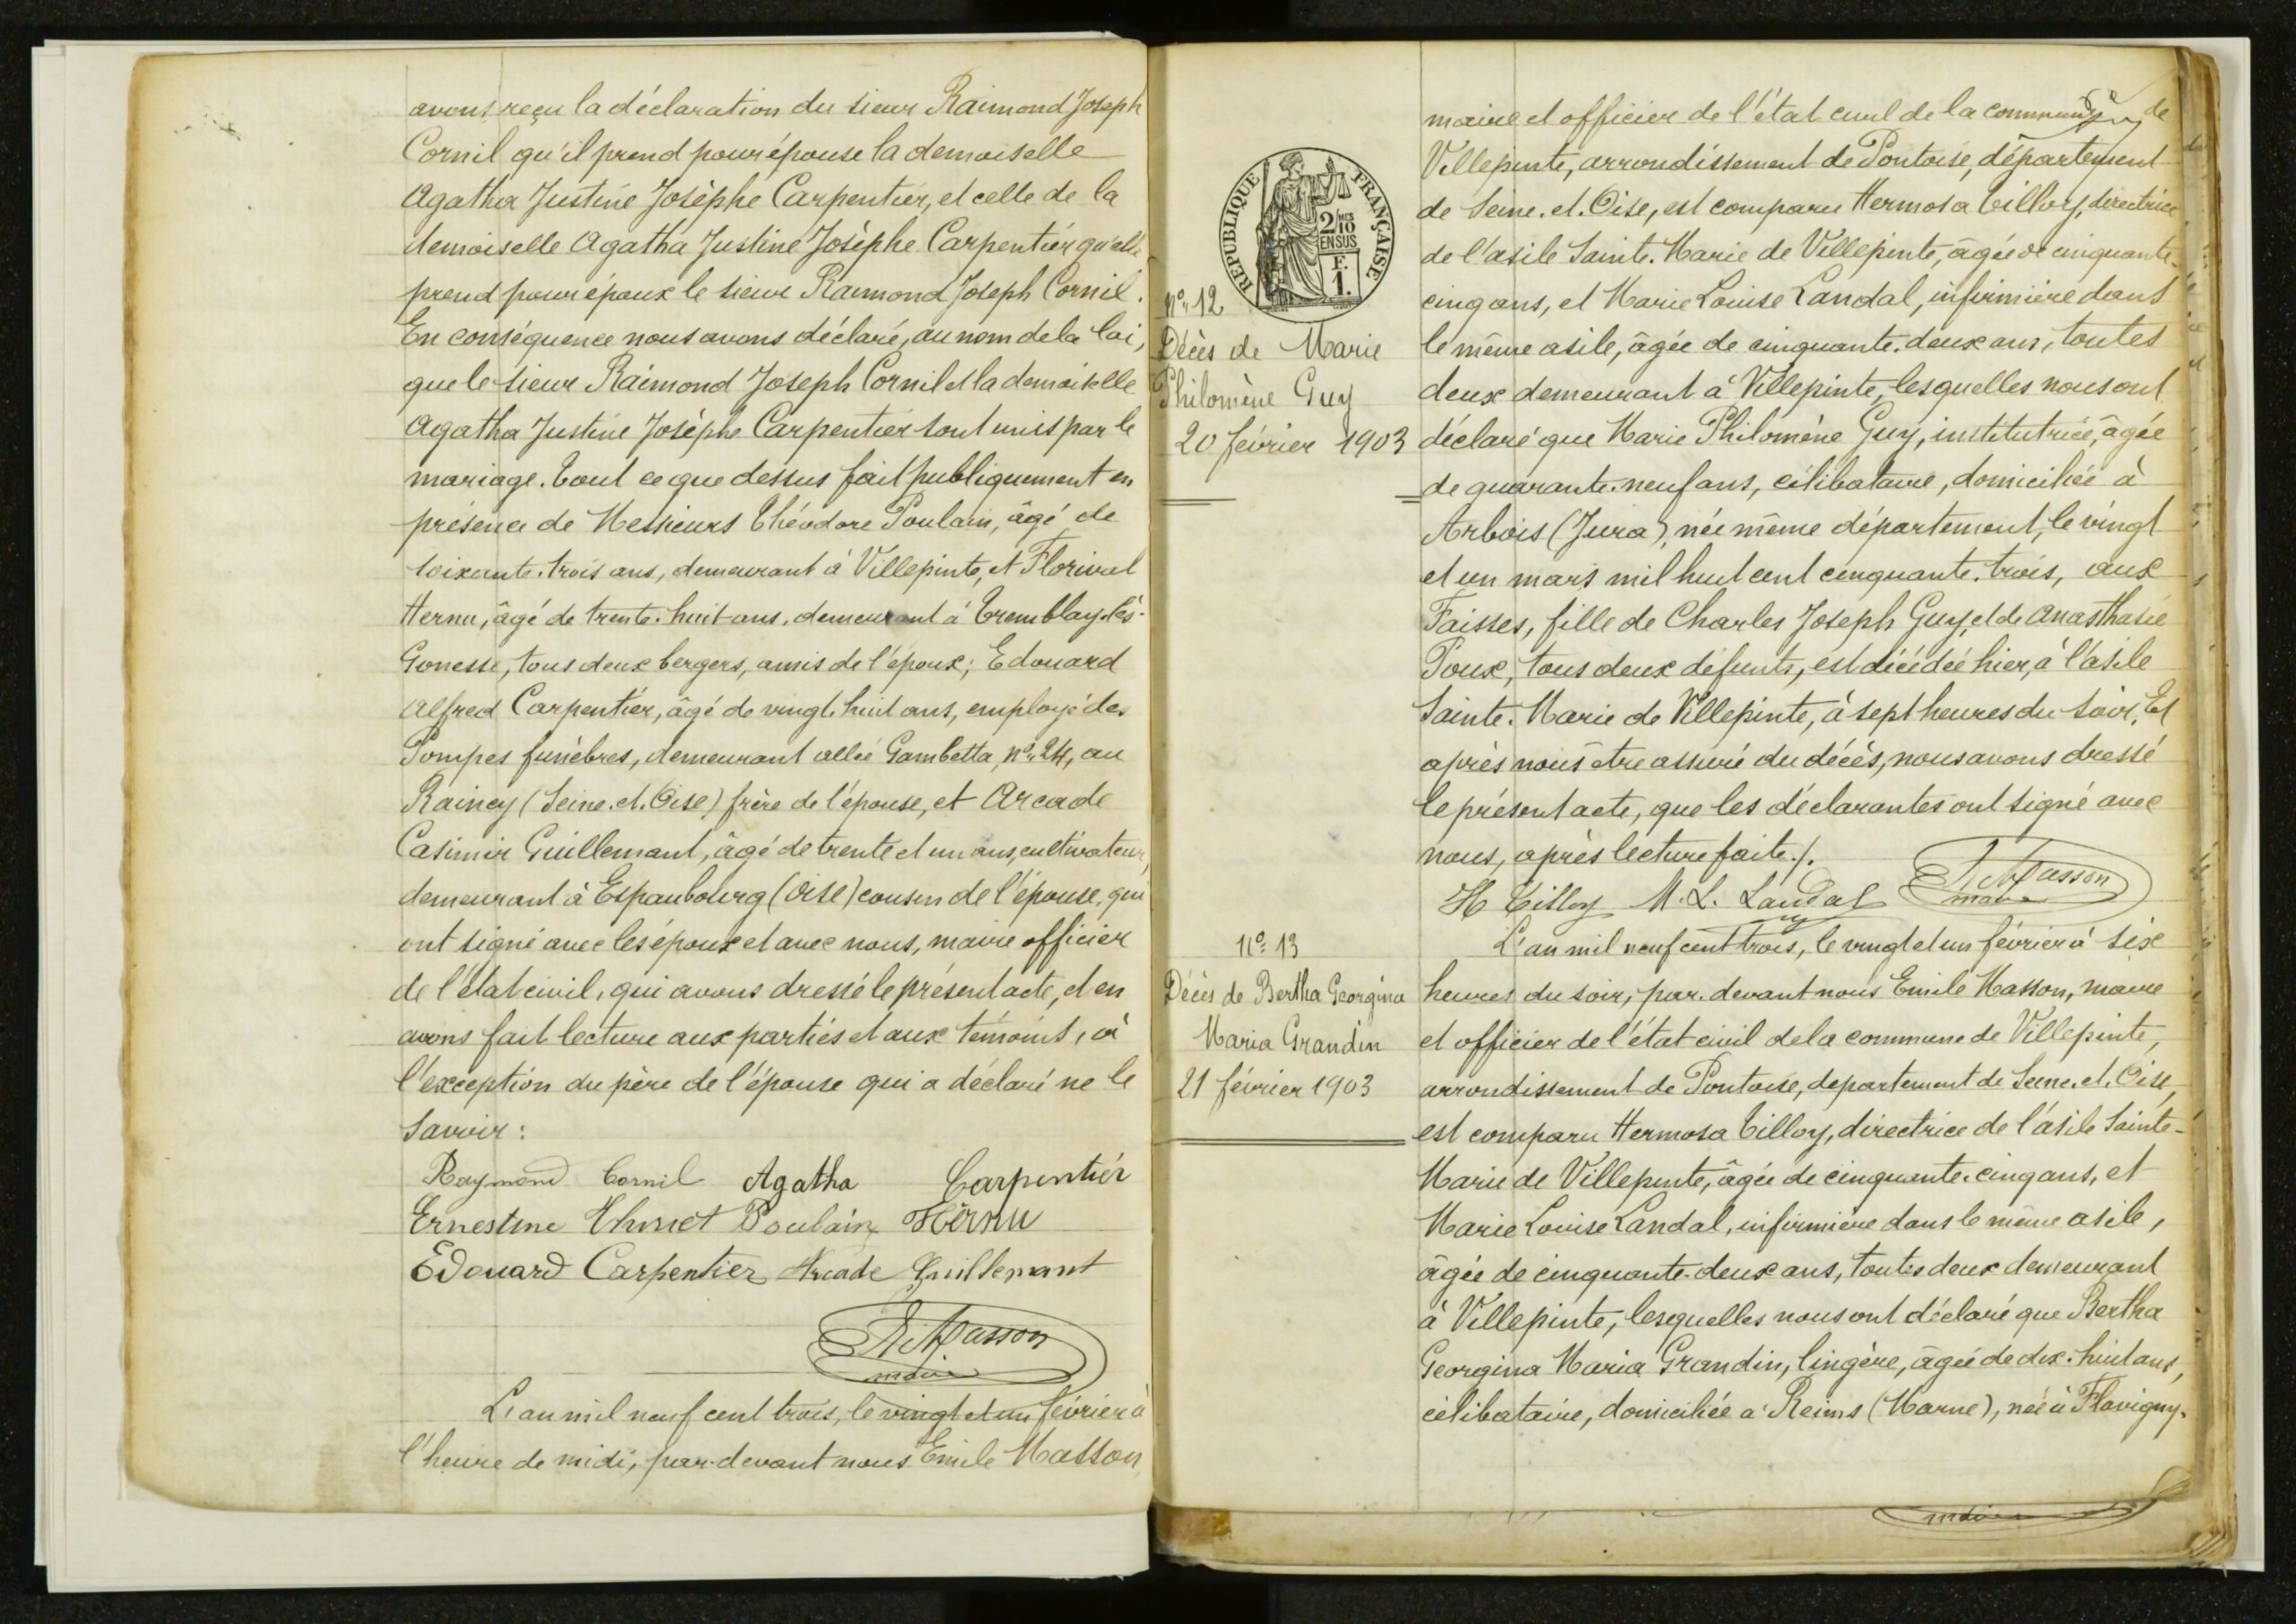 avons reçu la déclaration du sieur Raimond Joseph
Cornil qu'il prend pour épouse la demoiselle
Agatha Justine Josèphe Carpentier, et celle de la
demoiselle Agatha Justine Josèphe Carpentier qu'elle
prend pour époux le sieur Raimond Joseph Cornil.
En conséquence nous avons déclaré, au nom de la loi,
que le sieur Raimond Joseph Cornil et la demoiselle
Agatha Justine Josèphe Carpentier sont unis par le
mariage. Tout ce que dessus fait publiquement en
présence de Messieurs Théodore Poulain, âgé de
soixante-trois ans, demeurant à Villepinte, et Florival
Hernu, âgé de trente-huit ans, demeurant à Tremblay-lès-
Gonesse, tous deux bergers, amis de l'époux; Edouard
Alfred Carpentier, âgé de vingt-huit ans, employé des
Pompes funèbres, demeurant allée Gambetta, n° 24, au
Raincy (Seine-et-Oise) frère de l'épouse, et Arcade
Casimir Guillemant, âgé de trente et un ans, cultivateur,
demeurant à Espaubourg (Oise) cousin de l'épouse, qui
ont signé avec les époux et avec nous, maire officier
de l'état civil, qui avons dressé le présent acte, et en
avons fait lecture aux parties et aux témoins, à
l'exception du père de l'épouse qui a déclaré ne le
savoir:
Raymond Cornil Agatha Carpentier
Ernestine Poulain Hernu
Edouard Carpentier Arcade Guillemant
Masson
maire
L'an mil neuf cent trois, le vingt et un février à
l'heure de midi, par-devant nous Emile Masson,
REPUBLIQUE FRANÇAISE
2/10 EN SUS
F. 1.
n° 12
Décès de Marie
Philomène Guy
20 février 1903
maire et officier de l'état civil de la commune de
Villepinte, arrondissement de Pontoise, département
de Seine-et-Oise, est comparu Hermosa Tilloy, directrice
de l'asile Sainte-Marie de Villepinte, âgée de cinquante-
cinq ans, et Marie Louise Landal, infirmière dans
le même asile, âgée de cinquante-deux ans, toutes
deux demeurant à Villepinte, lesquelles nous ont
déclaré que Marie Philomène Guy, institutrice, âgée
de quarante-neuf ans, célibataire, domiciliée à
Arbois (Jura), née même département, le vingt
et un mars mil huit cent cinquante-trois, aux
Faisses, fille de Charles Joseph Guy, et de Anasthasie
Poux, tous deux défunts, est décédée hier, à l'asile
Sainte-Marie de Villepinte, à sept heures du soir. Et
après nous être assuré du décès, nous avons dressé
le présent acte, que les déclarantes ont signé avec
nous, après lecture faite./.
H Tilloy M. L. Landal Masson
maire
n° 13
Décès de Bertha Georgina
Maria Grandin
21 février 1903
L'an mil neuf cent trois, le vingt et un février à six
heures du soir, par-devant nous Emile Masson, maire
et officier de l'état civil de la commune de Villepinte,
arrondissement de Pontoise, departement de Seine-et-Oise,
est comparu Hermosa Tilloy, directrice de l'asile Sainte-
Marie de Villepinte, âgée de cinquante-cinq ans, et
Marie Louise Landal, infirmière dans le même asile,
âgée de cinquante-deux ans, toutes deux demeurant
à Villepinte, lesquelles nous ont déclaré que Bertha
Georgina Maria Grandin, lingère, âgée de dix-huit ans,
célibataire, domiciliée à Reims (Marne), née à Flavigny-
maire